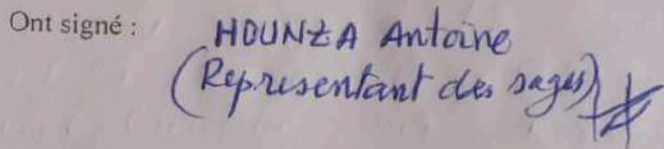 Ont signé : HOUNZA Antoine
(Representant des sages)